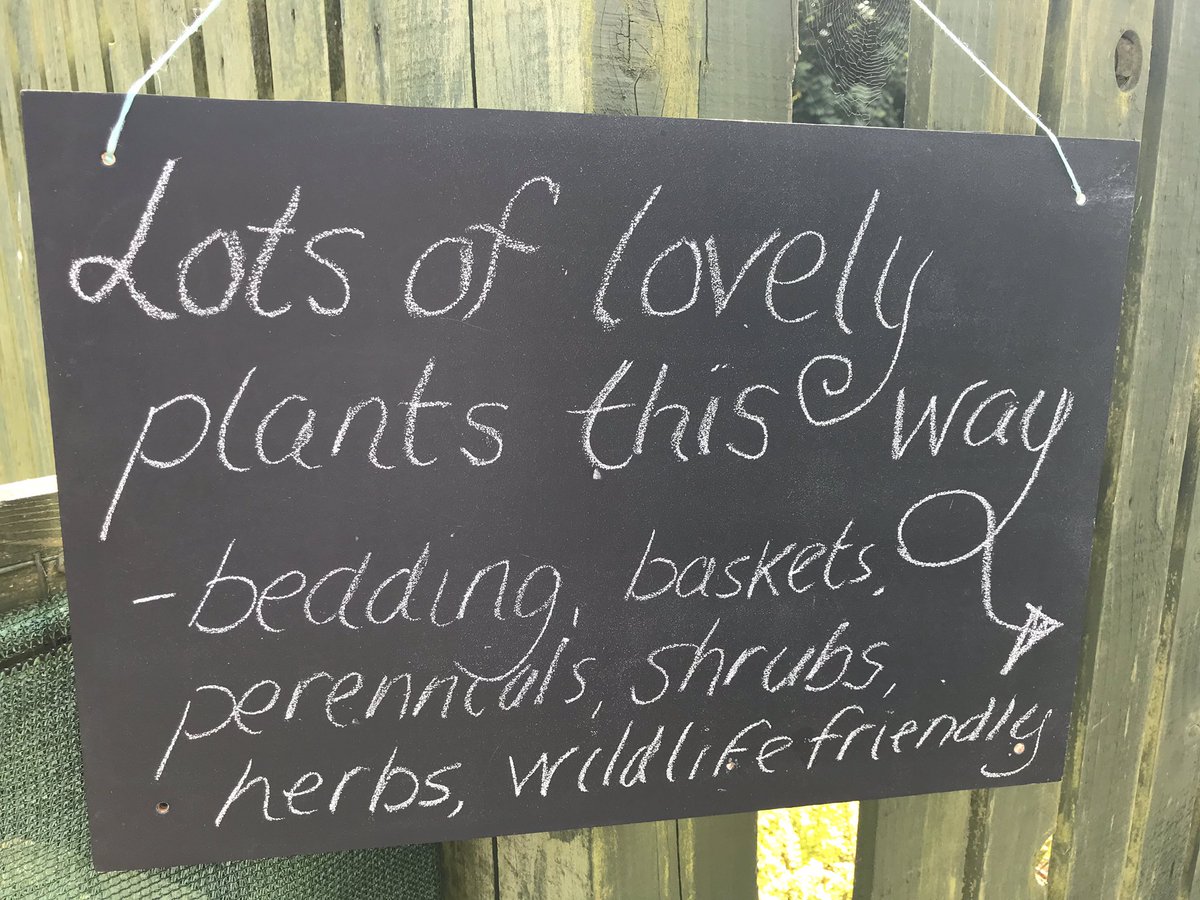 Lots of lovely
plants this way
- bedding, baskets,
perennials, shrubs,
herbs, wildlife friendly